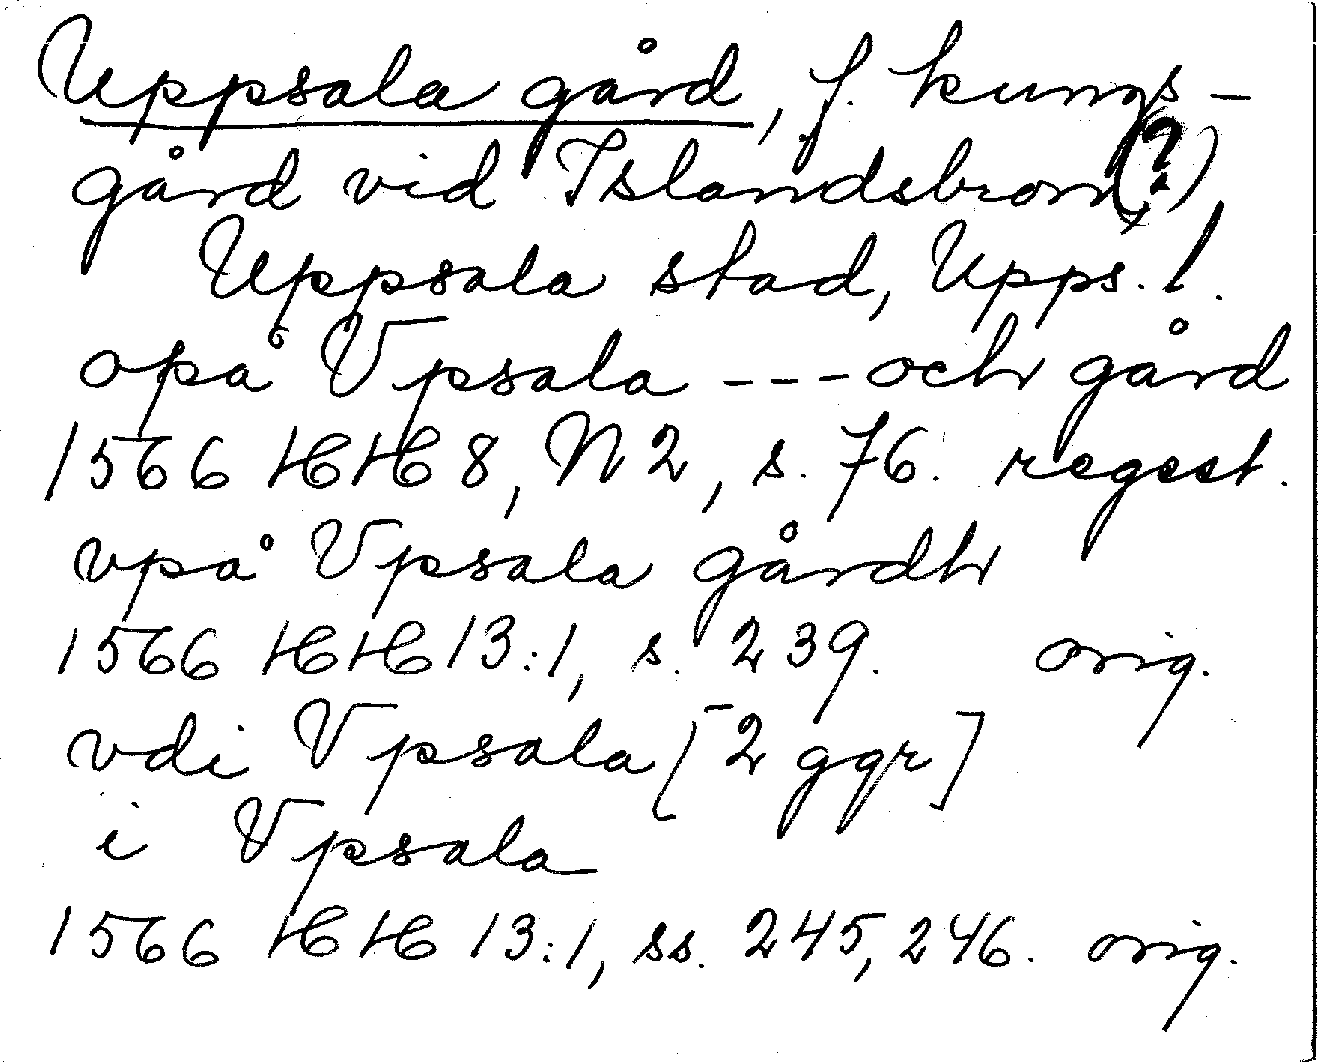 Uppsala gård, f. kungs-
gård vid Islandsbron(?),
Uppsala stad, Upps. l.
opå Vpsala --- och gård
1566 HH 8, N 2, s. 76. regest.
vpå Vpsala gårdh
1566 HH 13:1, s. 239. orig.
vdi Vpsala [2 ggr]
i Vpsala
1566 HH 13:1, ss. 245, 246. orig.